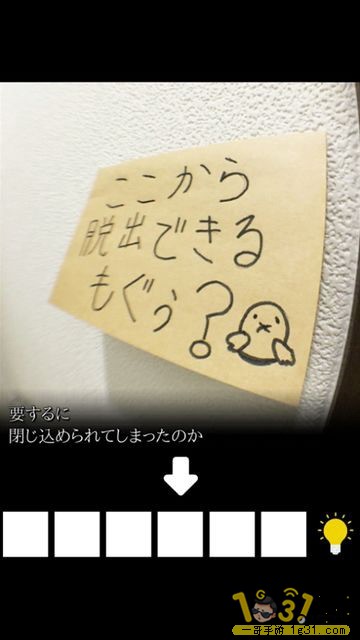 ここから
脱出できる
もぐぅ?
要するに
閉じ込められてしまったのか
1G31
一部手游 1g31.com